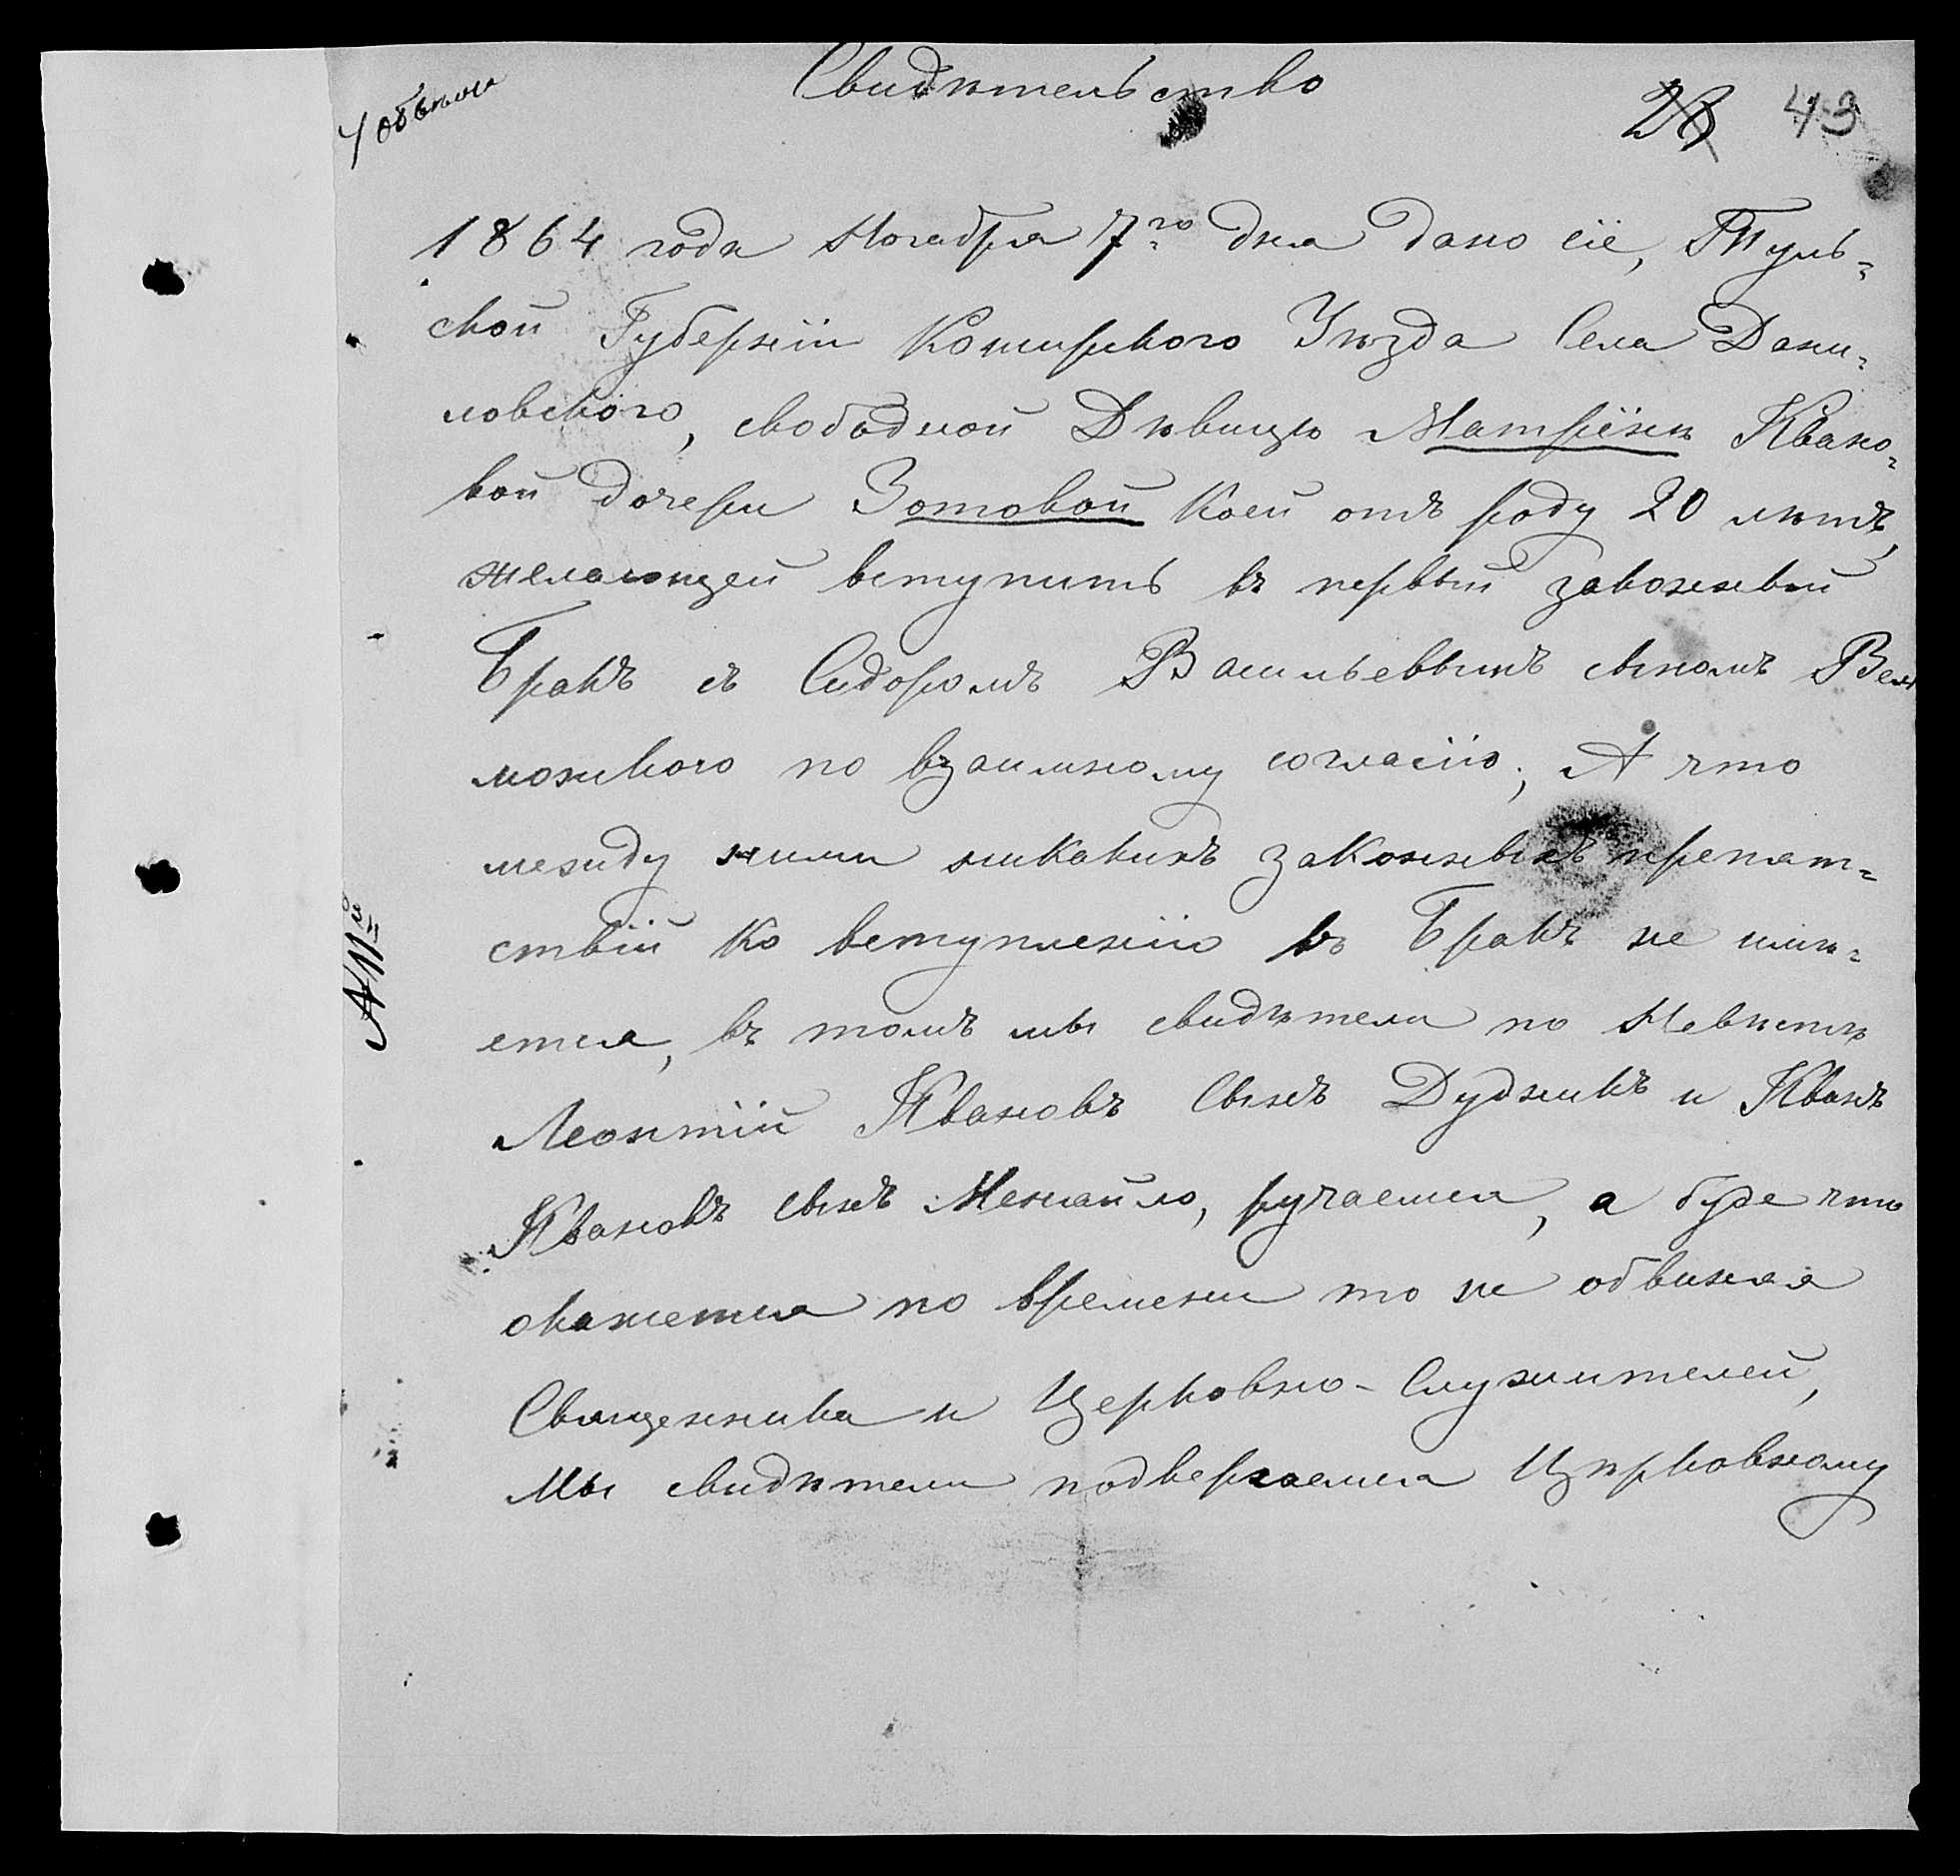 Свидѣтельство
28 43
1864 года Ноября 7го дня дано сіе, Туль=
ской Губерніи Коширского Уѣзда Села Дани=
ловского, свободной Дѣвицѣ Матрёнѣ Ивано=
вой дочери Зотовой коей отъ роду 20 лѣтъ,
желающей вступить въ первый законный
Бракъ съ Сидоромъ Васильевымъ сыномъ Вель
можного по взаимному согласію; А что
между ними никакихъ законныхъ препят=
ствій ко вступленію въ Бракъ не имѣ=
ется, въ томъ мы свидѣтели по Невѣстѣ
Леонтій Ивановъ Сынъ Дудникъ и Иванъ
Ивановъ сынъ Ненайло, ручаемся, а буде что
окажется по времени то не обвиняя
Священника и Церковно-Служителей,
Мы свидѣтели подвергаемся Цѣрковному
№ 11й